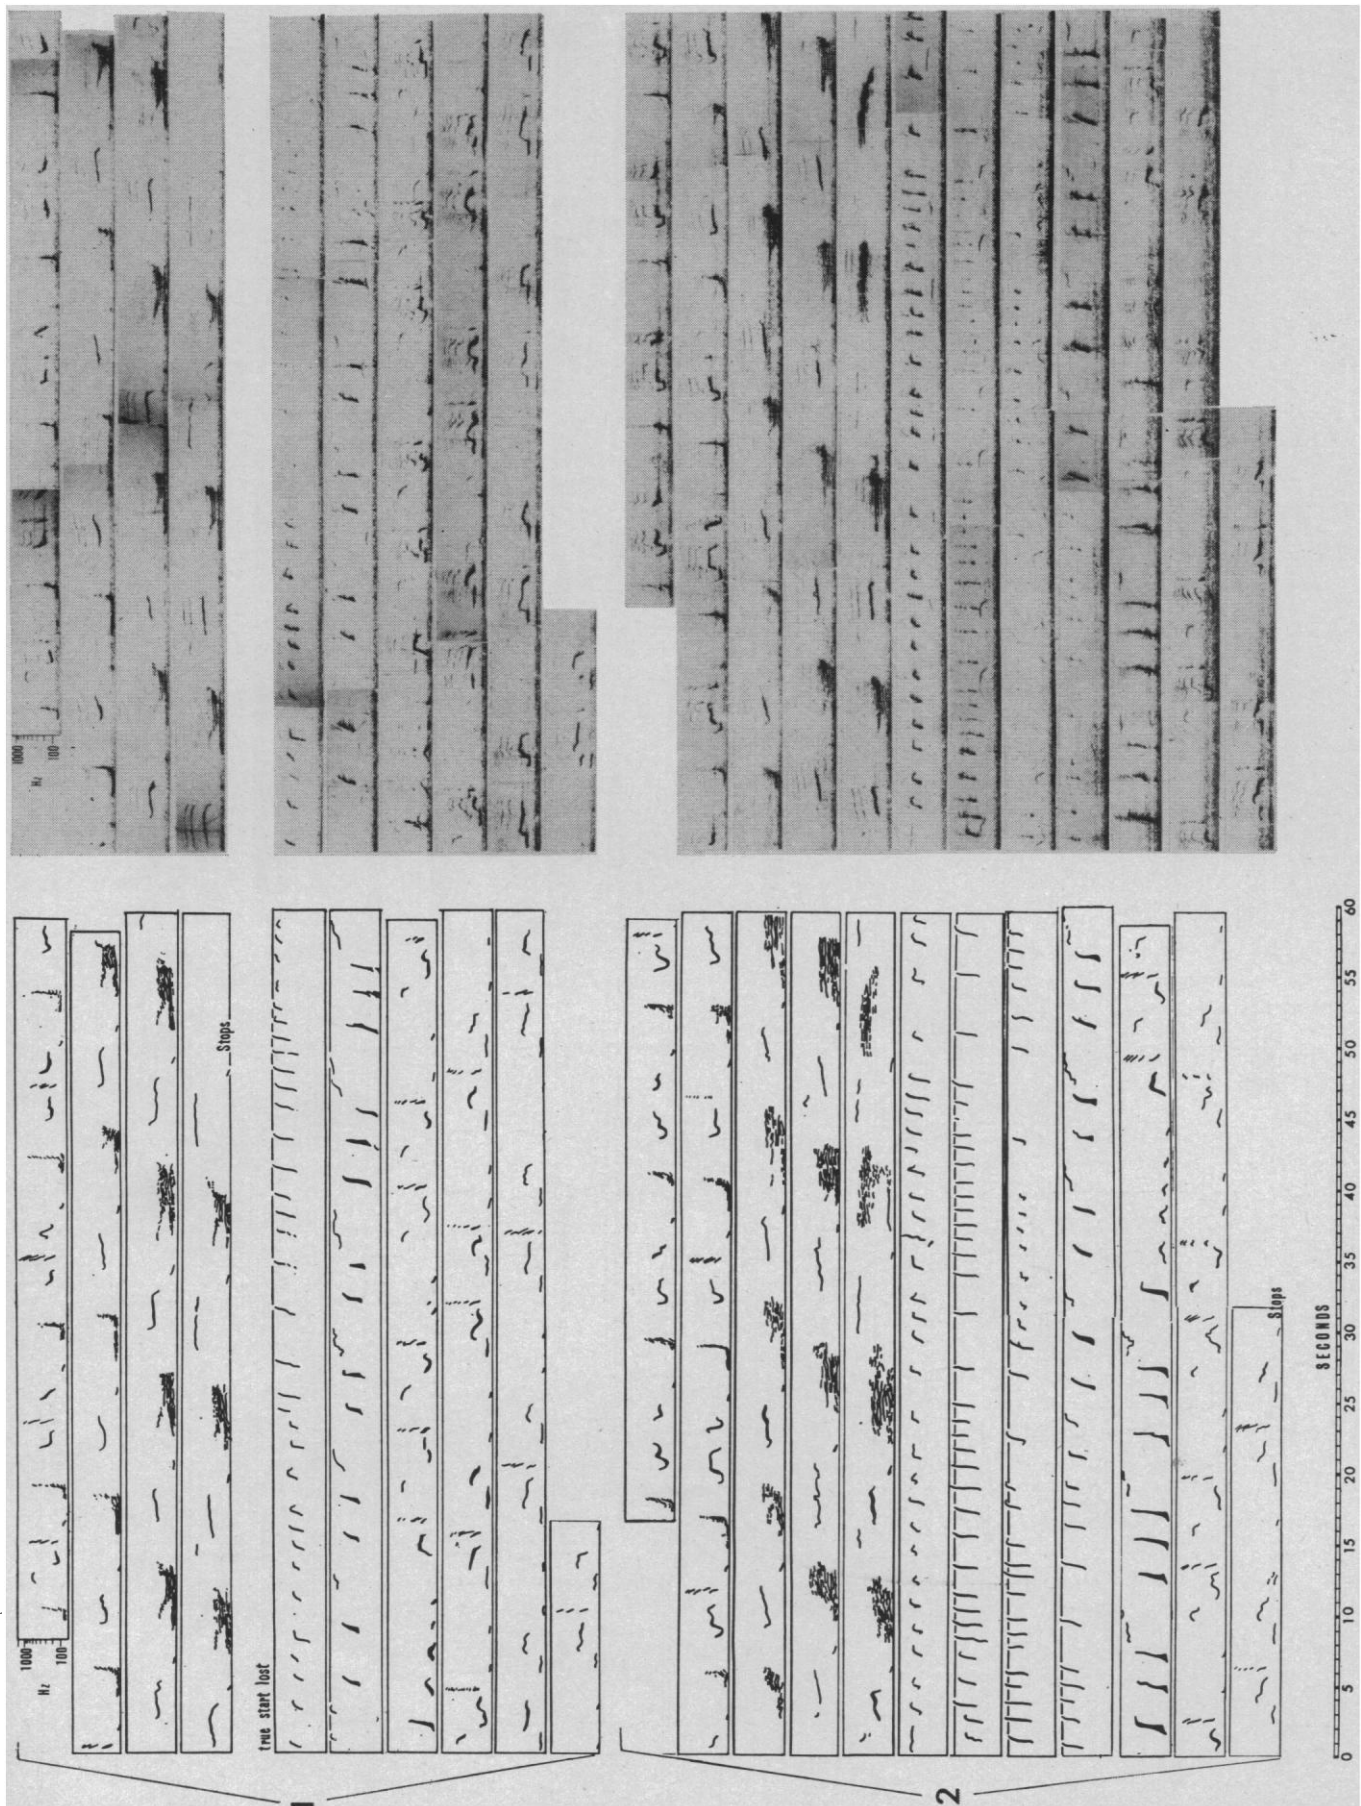 1000
100
Hz
1000
100
Hz
Stops
true start lost
2
Stops
0 5 10 15 20 25 30 35 40 45 50 55 60
SECONDS